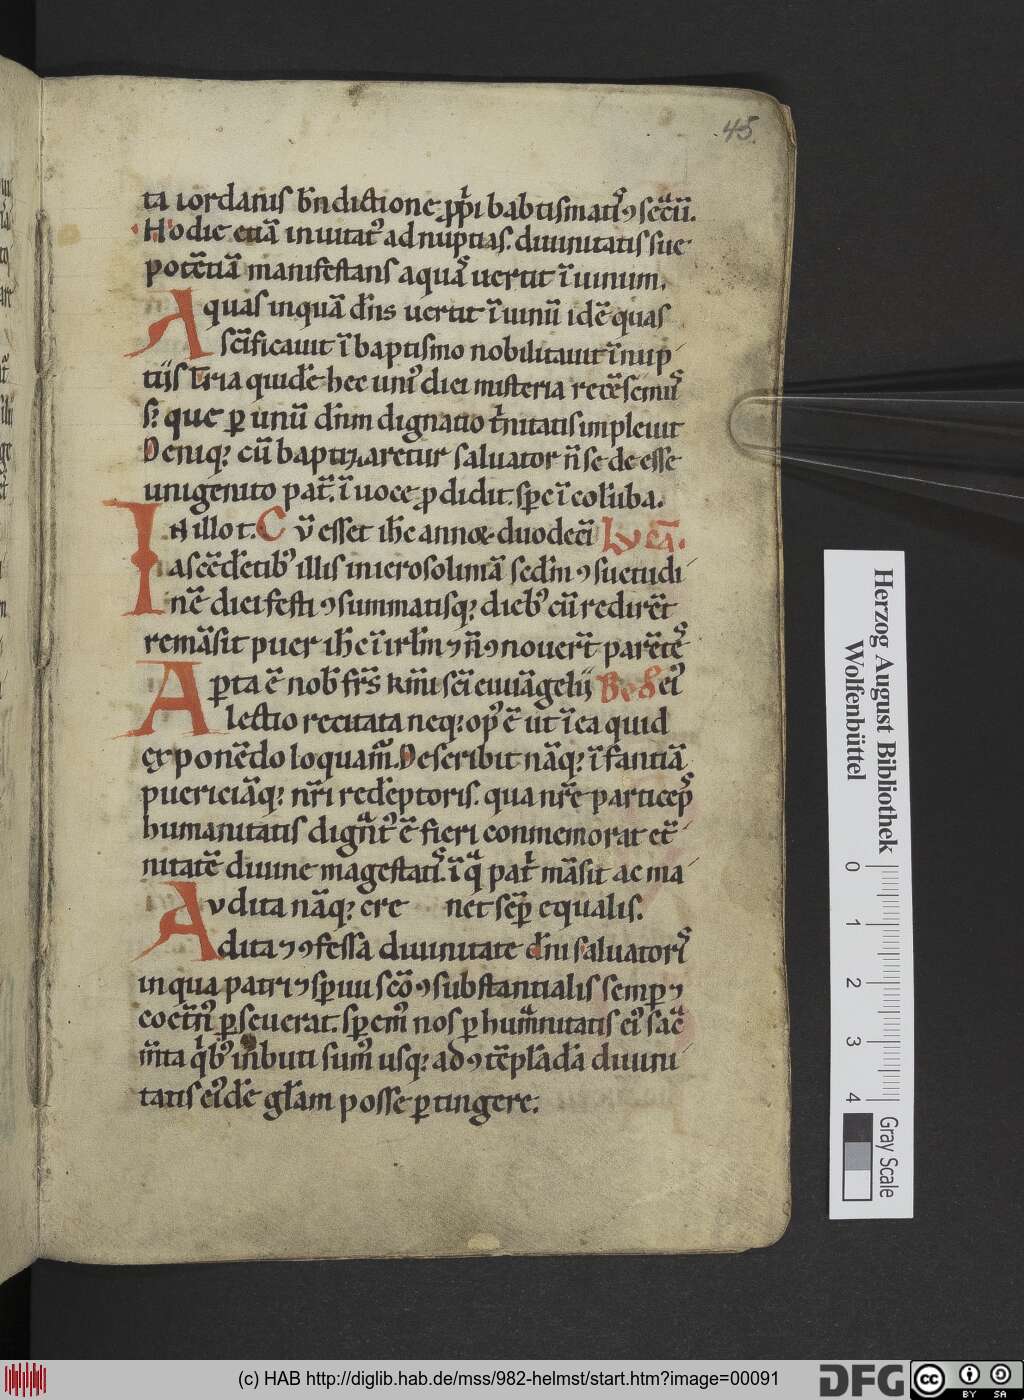 45.
ta iordanis b̄n dictione ꝓp̄i babtismatiˢ ꝯsec̄ū.
Hodie etiā inuitatᷣ ad nuptias. diuinitatis sue
potētiā manifestans aquā uertit ī uinum.
Aquas inquā dn̄s uertit ī uinū idē quas
sc̄ificauit ī baptismo nobilitauit ī nup
tijs Tria quidē hec uniꝰ diei misteria recēsemuˢ
s; que ꝑ unū dn̄m dignatio t̄nitatis impleuit
Deniqꝫ cū baptizaretur saluator n̄ se de esse
unigenito pat̄. ī uoce ꝓdidit. sp̄c ī colūba.
In illo t. Cū esset ih̄c annoꝝ duodecī Lucā.
ascēdētibꝰ illis in ierosolimā sedm̄ ꝯsuetudi
nē diei festi ꝯsummatisqꝫ diebꝰ cū redirēt
remāsit puer ih̄c ī irl̄m ⁊ n̄ ꝯnouer̄t parētēˢ
Aperta ē nob̄ fr̄s km̄i sc̄i euuāgelij Bed eiꝰ
lectio recitata neqꝫ opꝰ ē ut ī ea quid
exponēdo loquam̄. Describit nāqꝫ īfantiā
puericiāqꝫ nr̄i redēptoris. qua nr̄e particepˢ
humanitatis dignatᷣ ē fieri conmemorat et̄
nitatē diuine magestatiˢ. ī qᵃ pat̄ māsit ac ma
Audita nāqꝫ cre net semꝑ equalis.
Adita ⁊ ꝯfessa diuinitate dn̄i saluatorıˢ
in qua patri ⁊ sp̄uu sc̄o ꝯsubstantialis semꝑ ⁊
coet̄nꝰ ꝑseuerat. sꝑemꝰ nos ꝑ humanitatis eiꝰ sac̄
m̄ta qⁱbꝰ inbuti sumꝰ usqꝫ ad ꝯtēplādā diuini
tatis eiꝰdē gl̄am posse ꝑtingere.
Herzog August Bibliothek
Wolfenbüttel
0 1 2 3 4
Gray Scale
(c) HAB http://diglib.hab.de/mss/982-helmst/start.htm?image=00091
DFG
cc BY SA